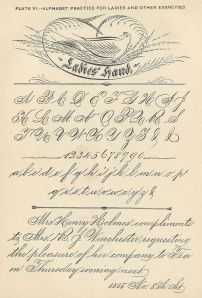 PLATE VI.—ALPHABET PRACTICE FOR LADIES AND OTHER EXERCISES
"Ladies' Hand."
A B C D E F G H I J
K L M N O P Q R S
T U V W X Y Z & &
1234567890
a b c d e f g h i j k l m n o p
q r s t u v w x y z &
Mrs Henry Holmes' compliments
to Mrs. Winchester requesting
the pleasure of her company to Tea
on Thursday evening next.
1815 8th St